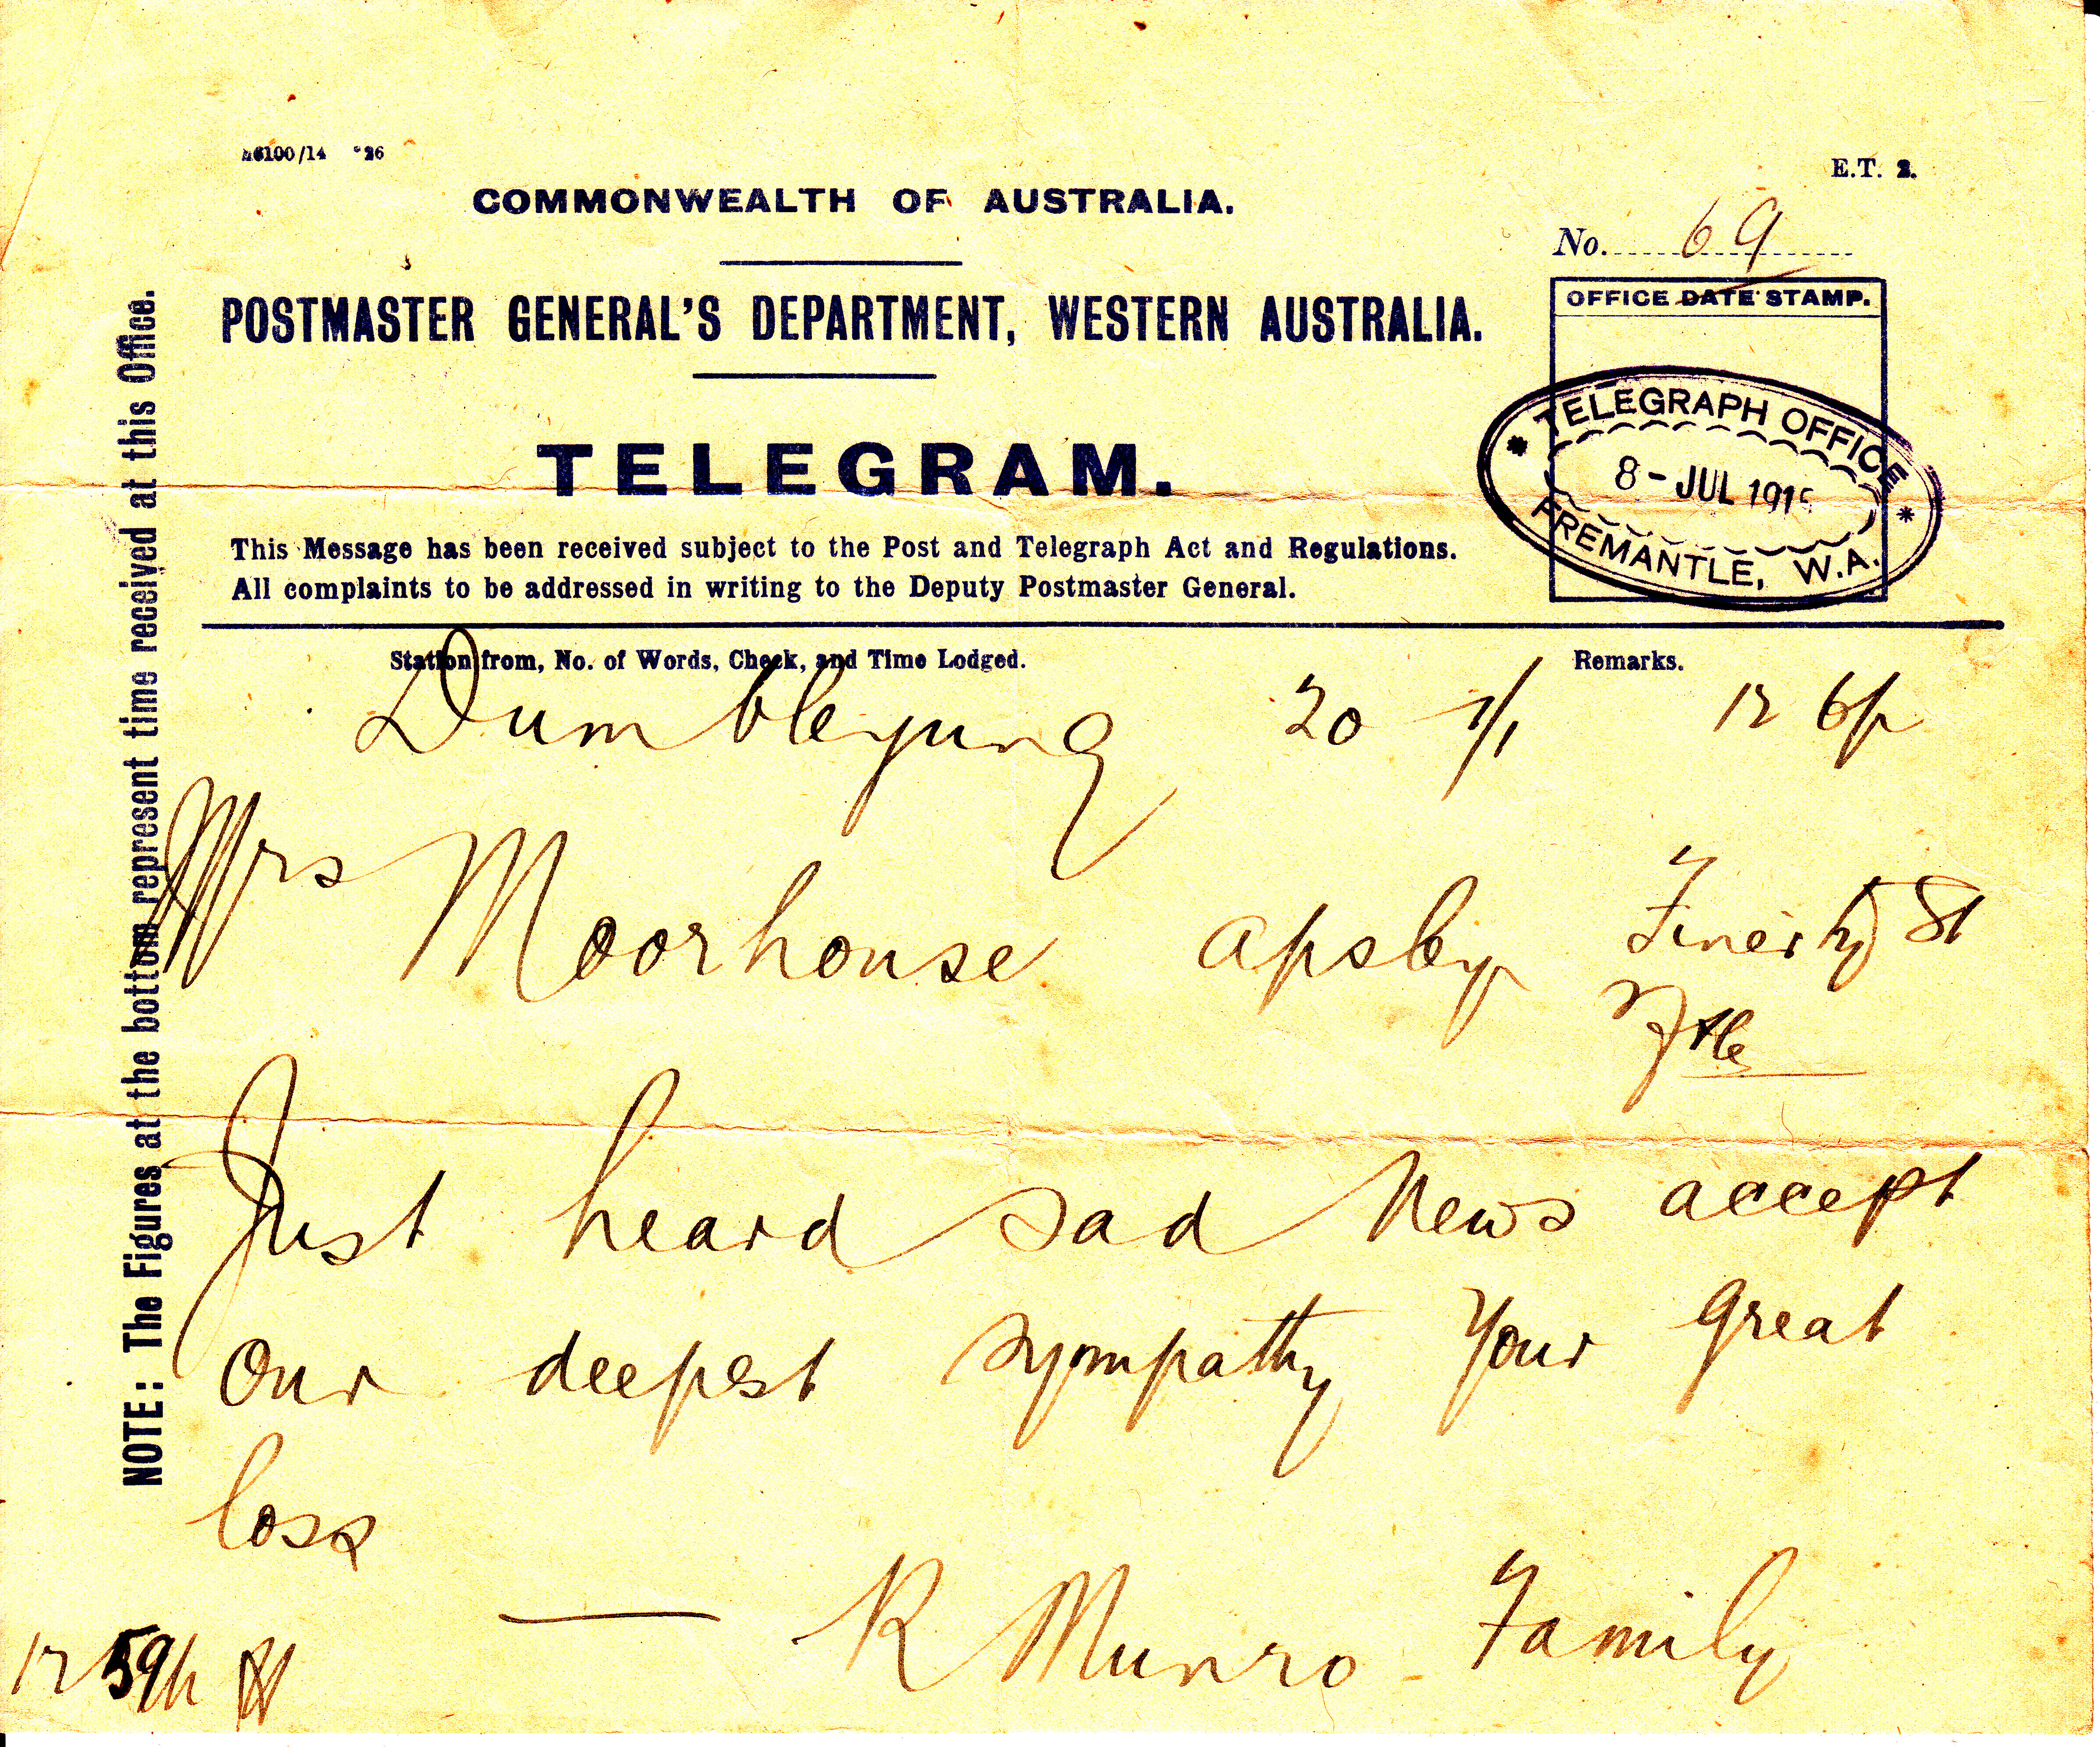 6100/14
E.T. 2.
COMMONWEALTH OF AUSTRALIA.
No. 69
POSTMASTER GENERAL'S DEPARTMENT, WESTERN AUSTRALIA.
OFFICE DATE STAMP.
TELEGRAM.
TELEGRAPH OFFICE
8 - JUL 191
FREMANTLE, W.A.
This Message has been received subject to the Post and Telegraph Act and Regulations.
All complaints to be addressed in writing to the Deputy Postmaster General.
Station from, No. of Words, Check, and Time Lodged. Remarks.
Dumbleyung 20 1/1 12 6p
Mrs Moorhouse apsley Finerty St
Ftle
Just heard sad News accept
Our deepest sympathy Your great
loss
— R Munro Family
12 59p
NOTE: The Figures at the bottom represent time received at this Office.